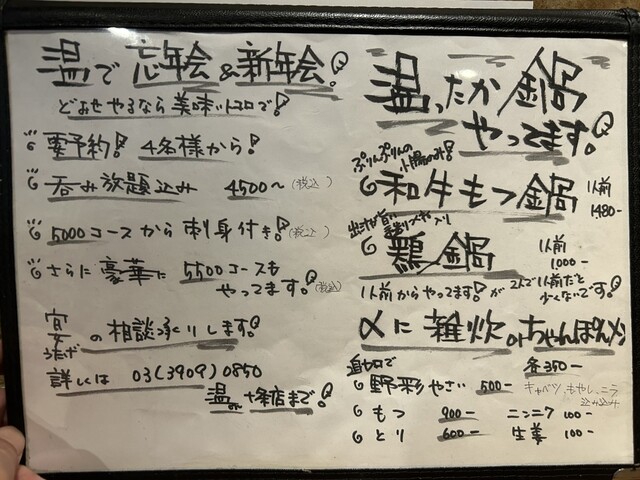 温で忘年会&新年会!
どおせやるなら美味いトコロで!
要予約! 4名様から!
呑み放題込み 4500~(税込)
5000コースから刺身付き!(税込)
さらに豪華に5500コースも
やってます!(税込)
宴会の相談承ります!
詳しくは 03(3909)0850
温 十条店まで!
温ったか鍋
やってます!
ぷりんぷりんの
小腸のみ!
和牛もつ鍋 1人前
1480-
出汁が旨い
入り
鶏鍋 1人前
1000-
1人前からやってます!が 2人で1人前だと
少くないです!
〆に雑炊orちゃんぽんメン
各350-
追加で
野彩やさい 500- キャベツ、もやし、ニラ
込み込み
もつ 900- ニンニク 100-
とり 600- 生姜 100-